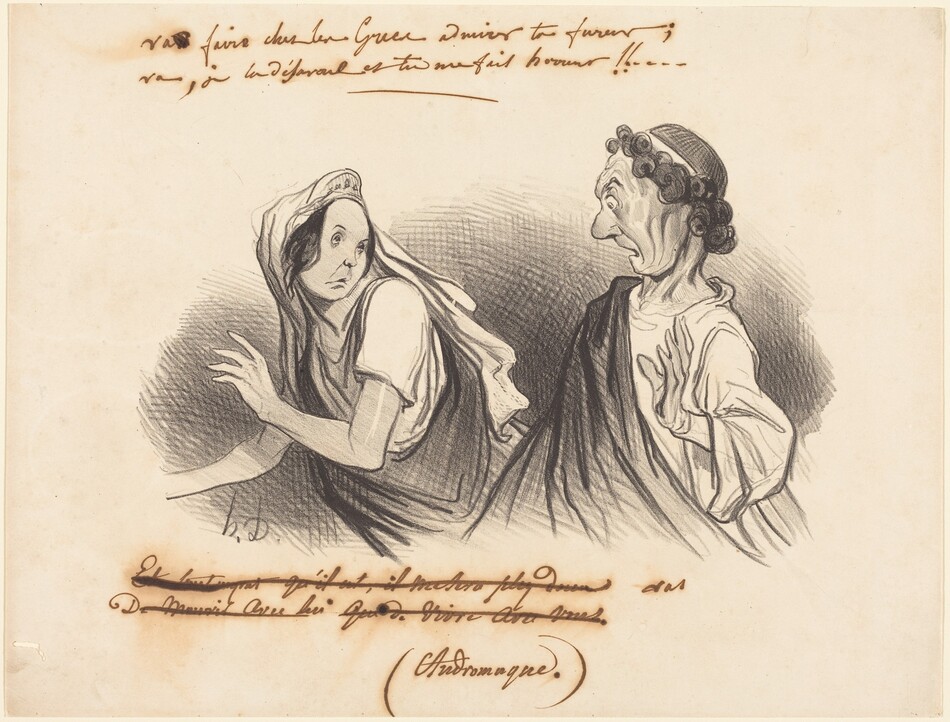 va faire chez les Grecs admirer ta fureur ;
va, je la désavoue et tu me fait horreur !!----
h.D.
Et tout ingrat qu'il est, il me sera plus doux vas
De Mourir avec lui que de vivre avec vous.
(Andromaque.)